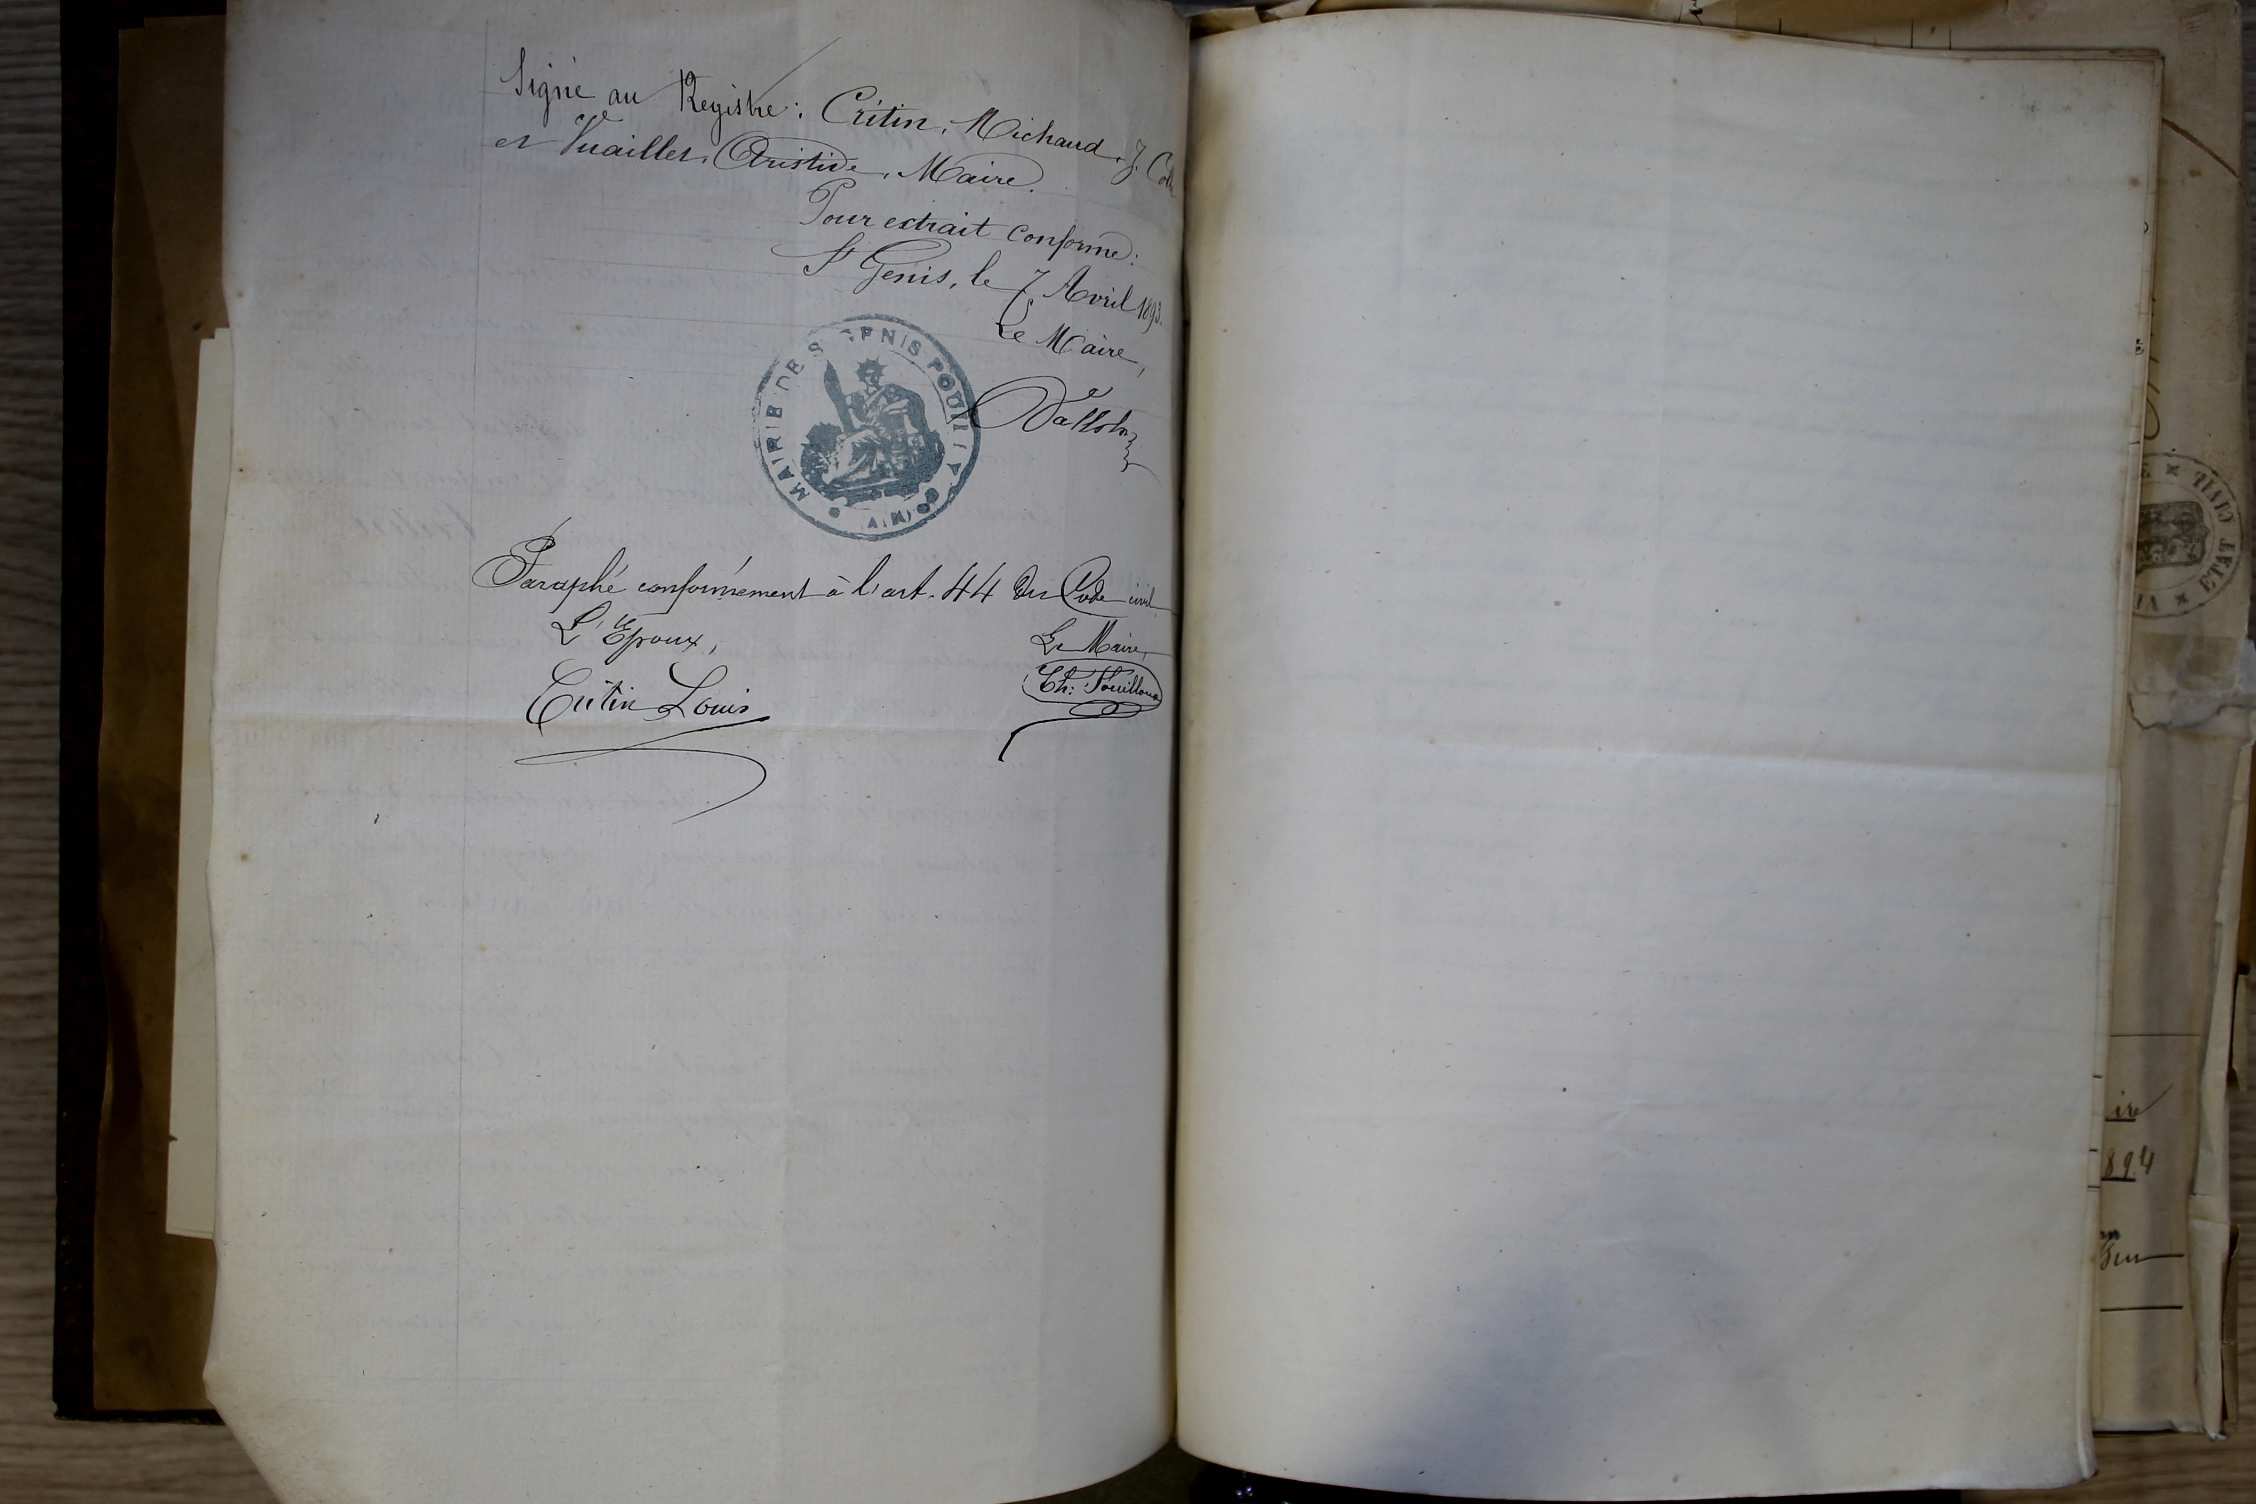 Signé au Registre : Critin, Michaud, J.
et Vuaillet, Aristide, Maire.
Pour extrait conforme :
St Genis, le 7 Avril 1893.
Le Maire,
MAIRIE DE ST GENIS POUILLY
(AIN)
Paraphé conformément à l'art. 44 du Code civil
L'Epoux,
Le Maire,
Critin Louis
Th: Fouilloux
ETAT CIVIL
ire
894